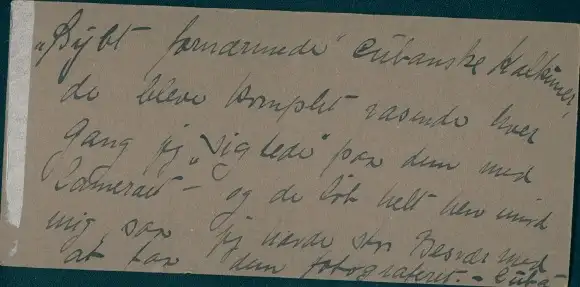 „Dybt fornærmede“ cubanske Kalkuner,
de bleve komplet rasende hver
Gang jeg „sigtede“ paa dem med
Cameraet – og de løb helt hen imod
mig, saa jeg havde stor Besvær med
at faa dem fotograferet. – Cuba